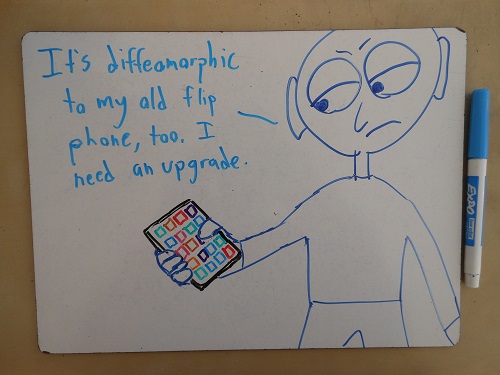 It's diffeomorphic
to my old flip
phone, too. I
need an upgrade.
EXPO